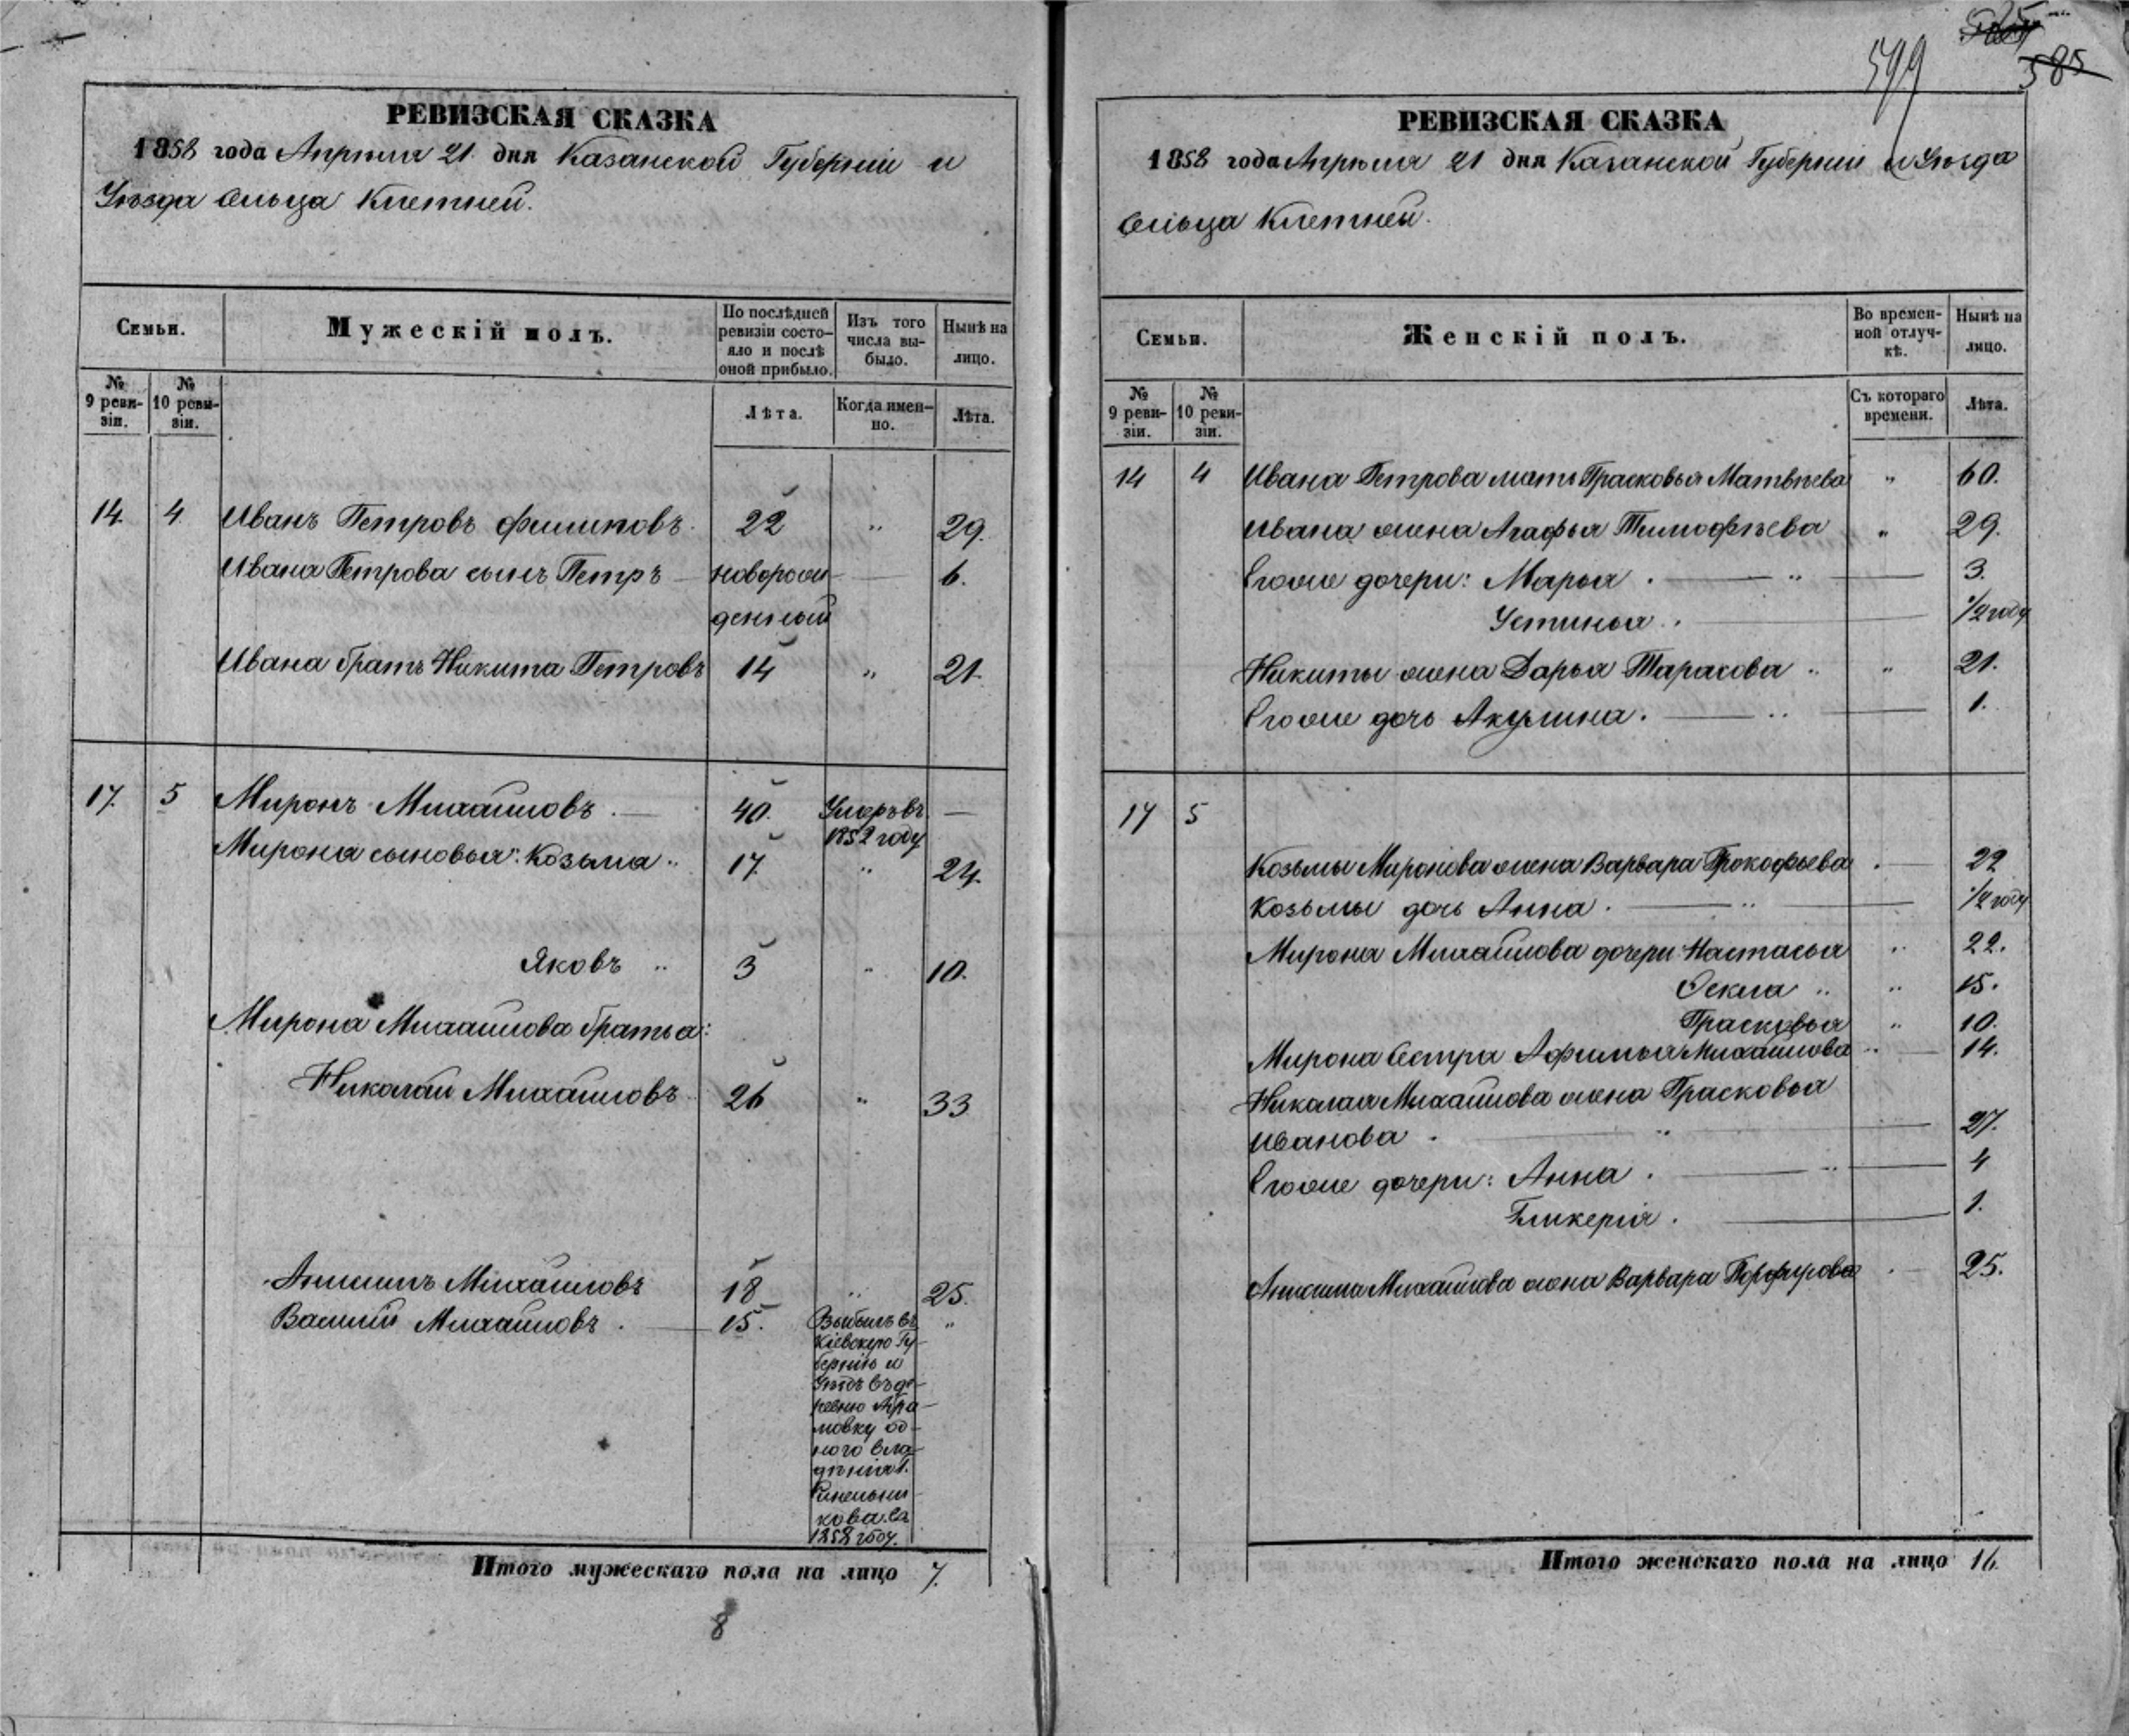 РЕВИЗСКАЯ СКАЗКА
1858 года Апрѣля 21 дня Казанской Губерніи и
Уѣзда Сельца Клетней.
Семьи.
Мужескій полъ.
По послѣдней ревизіи состояло и послѣ оной прибыло.
Изъ того числа выбыло.
Нынѣ на лицо.
№ 9 ревизіи.
№ 10 ревизіи.
Лѣта.
Когда именно.
Лѣта.
14. 4. Иванъ Петровъ Филиповъ. 22 „ 29.
Ивана Петрова сынъ Петръ — новорож— 6.
денный
Ивана братъ Никита Петровъ 14 „ 21.
17. 5 Миронъ Михайловъ. — 40. Умеръ въ —
1852 году
Мирона сыновья: Козьма „ 17. „ 24.
Яковъ „ 3 „ 10.
Мирона Михайлова братья:
Николай Михайловъ 26 „ 33
Анисимъ Михайловъ 18 „ 25.
Василий Михайловъ. — 15. Выбылъ въ „
Кіевскую Гу-
бернію и
Уѣздъ въ де-
ревню
мовку од-
ного вла-
дѣнія Г.
Синельни-
кова въ
1852 году.
Итого мужескаго пола на лицо 7.
8
599
585
РЕВИЗСКАЯ СКАЗКА
1858 года Апрѣля 21 дня Казанской Губерніи и Уѣзда
Сельца Клетней.
Семьи.
Женскій полъ.
Во временной отлучкѣ.
Нынѣ на лицо.
№ 9 ревизіи.
№ 10 ревизіи.
Съ котораго времени.
Лѣта.
14 4 Ивана Петрова мать Прасковья Матвѣева „ 60.
Ивана жена Агафья Тимофѣева „ 29.
Егоже дочери: Марья. — „ — 3.
Устинья. — 1/2 году
Никиты жена Дарья Тарасова „ „ 21.
Егоже дочь Акулина. — „ — 1.
17 5
Козьмы Миронова жена Варвара Прокофьева . — 22
Козьмы дочь Анна. — „ — 1/2 году
Мирона Михайлова дочери Настасья „ 22.
Ѳекла „ „ 15.
Прасковья „ 10.
Мирона Сестра Афимья Михайлова „ — 14.
Николая Михайлова жена Прасковья
Иванова. — „ — 27.
Егоже дочери: Анна. — „ — 4
Гликерія. — 1.
Анисима Михайлова жена Варвара Порфирова . — 25.
Итого женскаго пола на лицо 16.